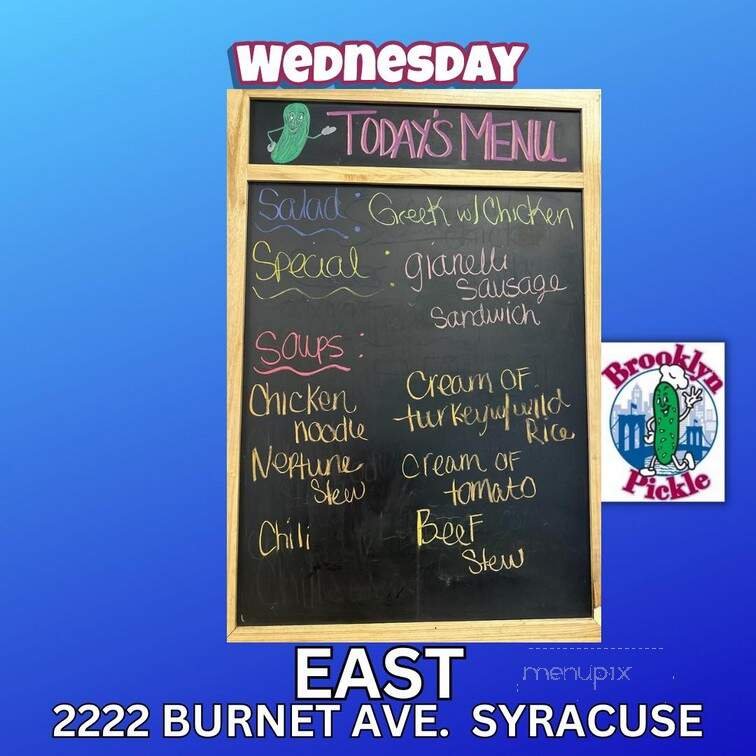 Wednesday
TODAY'S MENU
Salad: Greek w/Chicken
Special: gianelli
Sausage
Sandwich
Soups:
Chicken
noodle
Cream OF
turkey w/wild
Rice
Neptune
Stew
Cream OF
tomato
Chili
Beef
Stew
Brooklyn
Pickle
EAST
menupix
2222 BURNET AVE. SYRACUSE